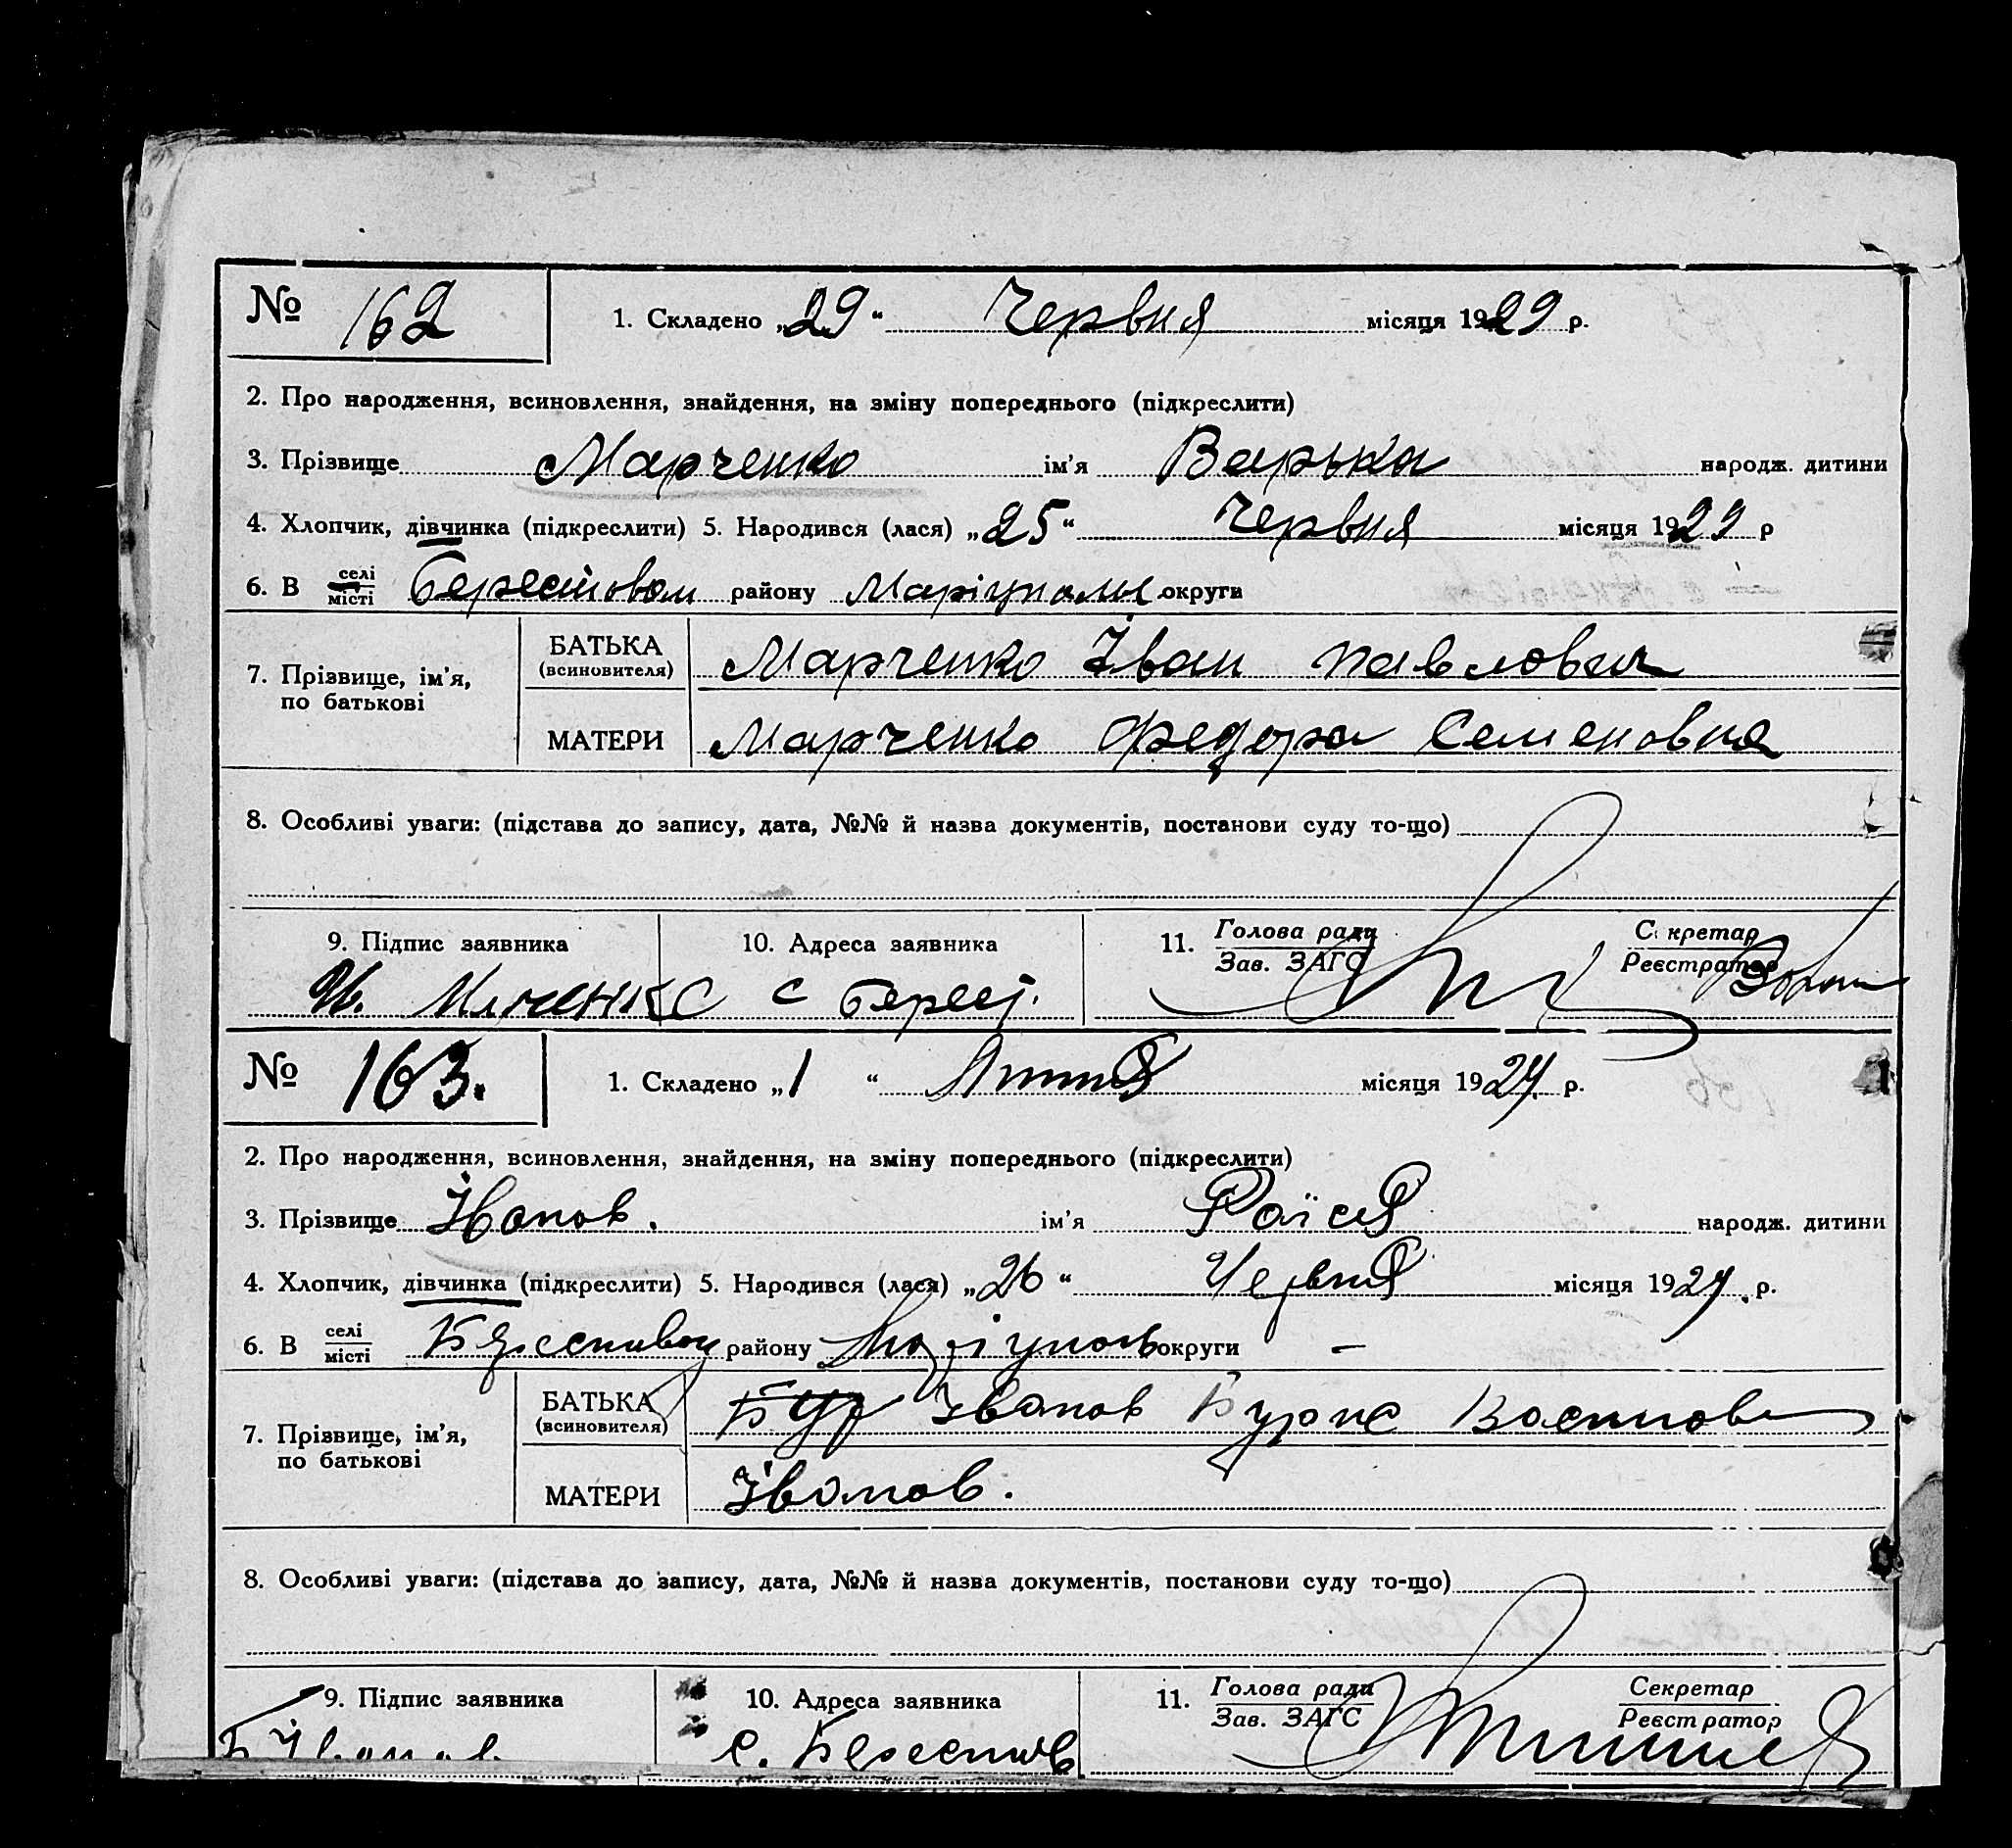 № 162 1. Складено „29" Червня місяця 1929 р.
2. Про народження, всиновлення, знайдення, на зміну попереднього (підкреслити)
3. Прізвище Марченко ім'я Варька народж. дитини
4. Хлопчик, дівчинка (підкреслити) 5. Народився (лася) „25" Червня місяця 1929 р
6. В селі місті Берестовом району Маріупольс округи
7. Прізвище, ім'я, по батькові
БАТЬКА (всиновителя) Марченко Іван Павлович
МАТЕРИ Марченко Федора Семеновна
8. Особливі уваги: (підстава до запису, дата, №№ й назва документів, постанови суду то-що)
9. Підпис заявника 10. Адреса заявника 11. Голова ради Зав. ЗАГС Секретар Реєстратор
с Берест.
№ 163. 1. Складено „1" Липня місяця 1929. р.
2. Про народження, всиновлення, знайдення, на зміну попереднього (підкреслити)
3. Прізвище Іванов. ім'я Раїся народж. дитини
4. Хлопчик, дівчинка (підкреслити) 5. Народився (лася) „26" Червня місяця 1929. р.
6. В селі місті району Маріуполь округи —
7. Прізвище, ім'я, по батькові
БАТЬКА (всиновителя) Іванов
МАТЕРИ Іванов.
8. Особливі уваги: (підстава до запису, дата, №№ й назва документів, постанови суду то-що)
9. Підпис заявника 10. Адреса заявника 11. Голова ради Зав. ЗАГС Секретар Реєстратор
Б Іванов с. Берестов